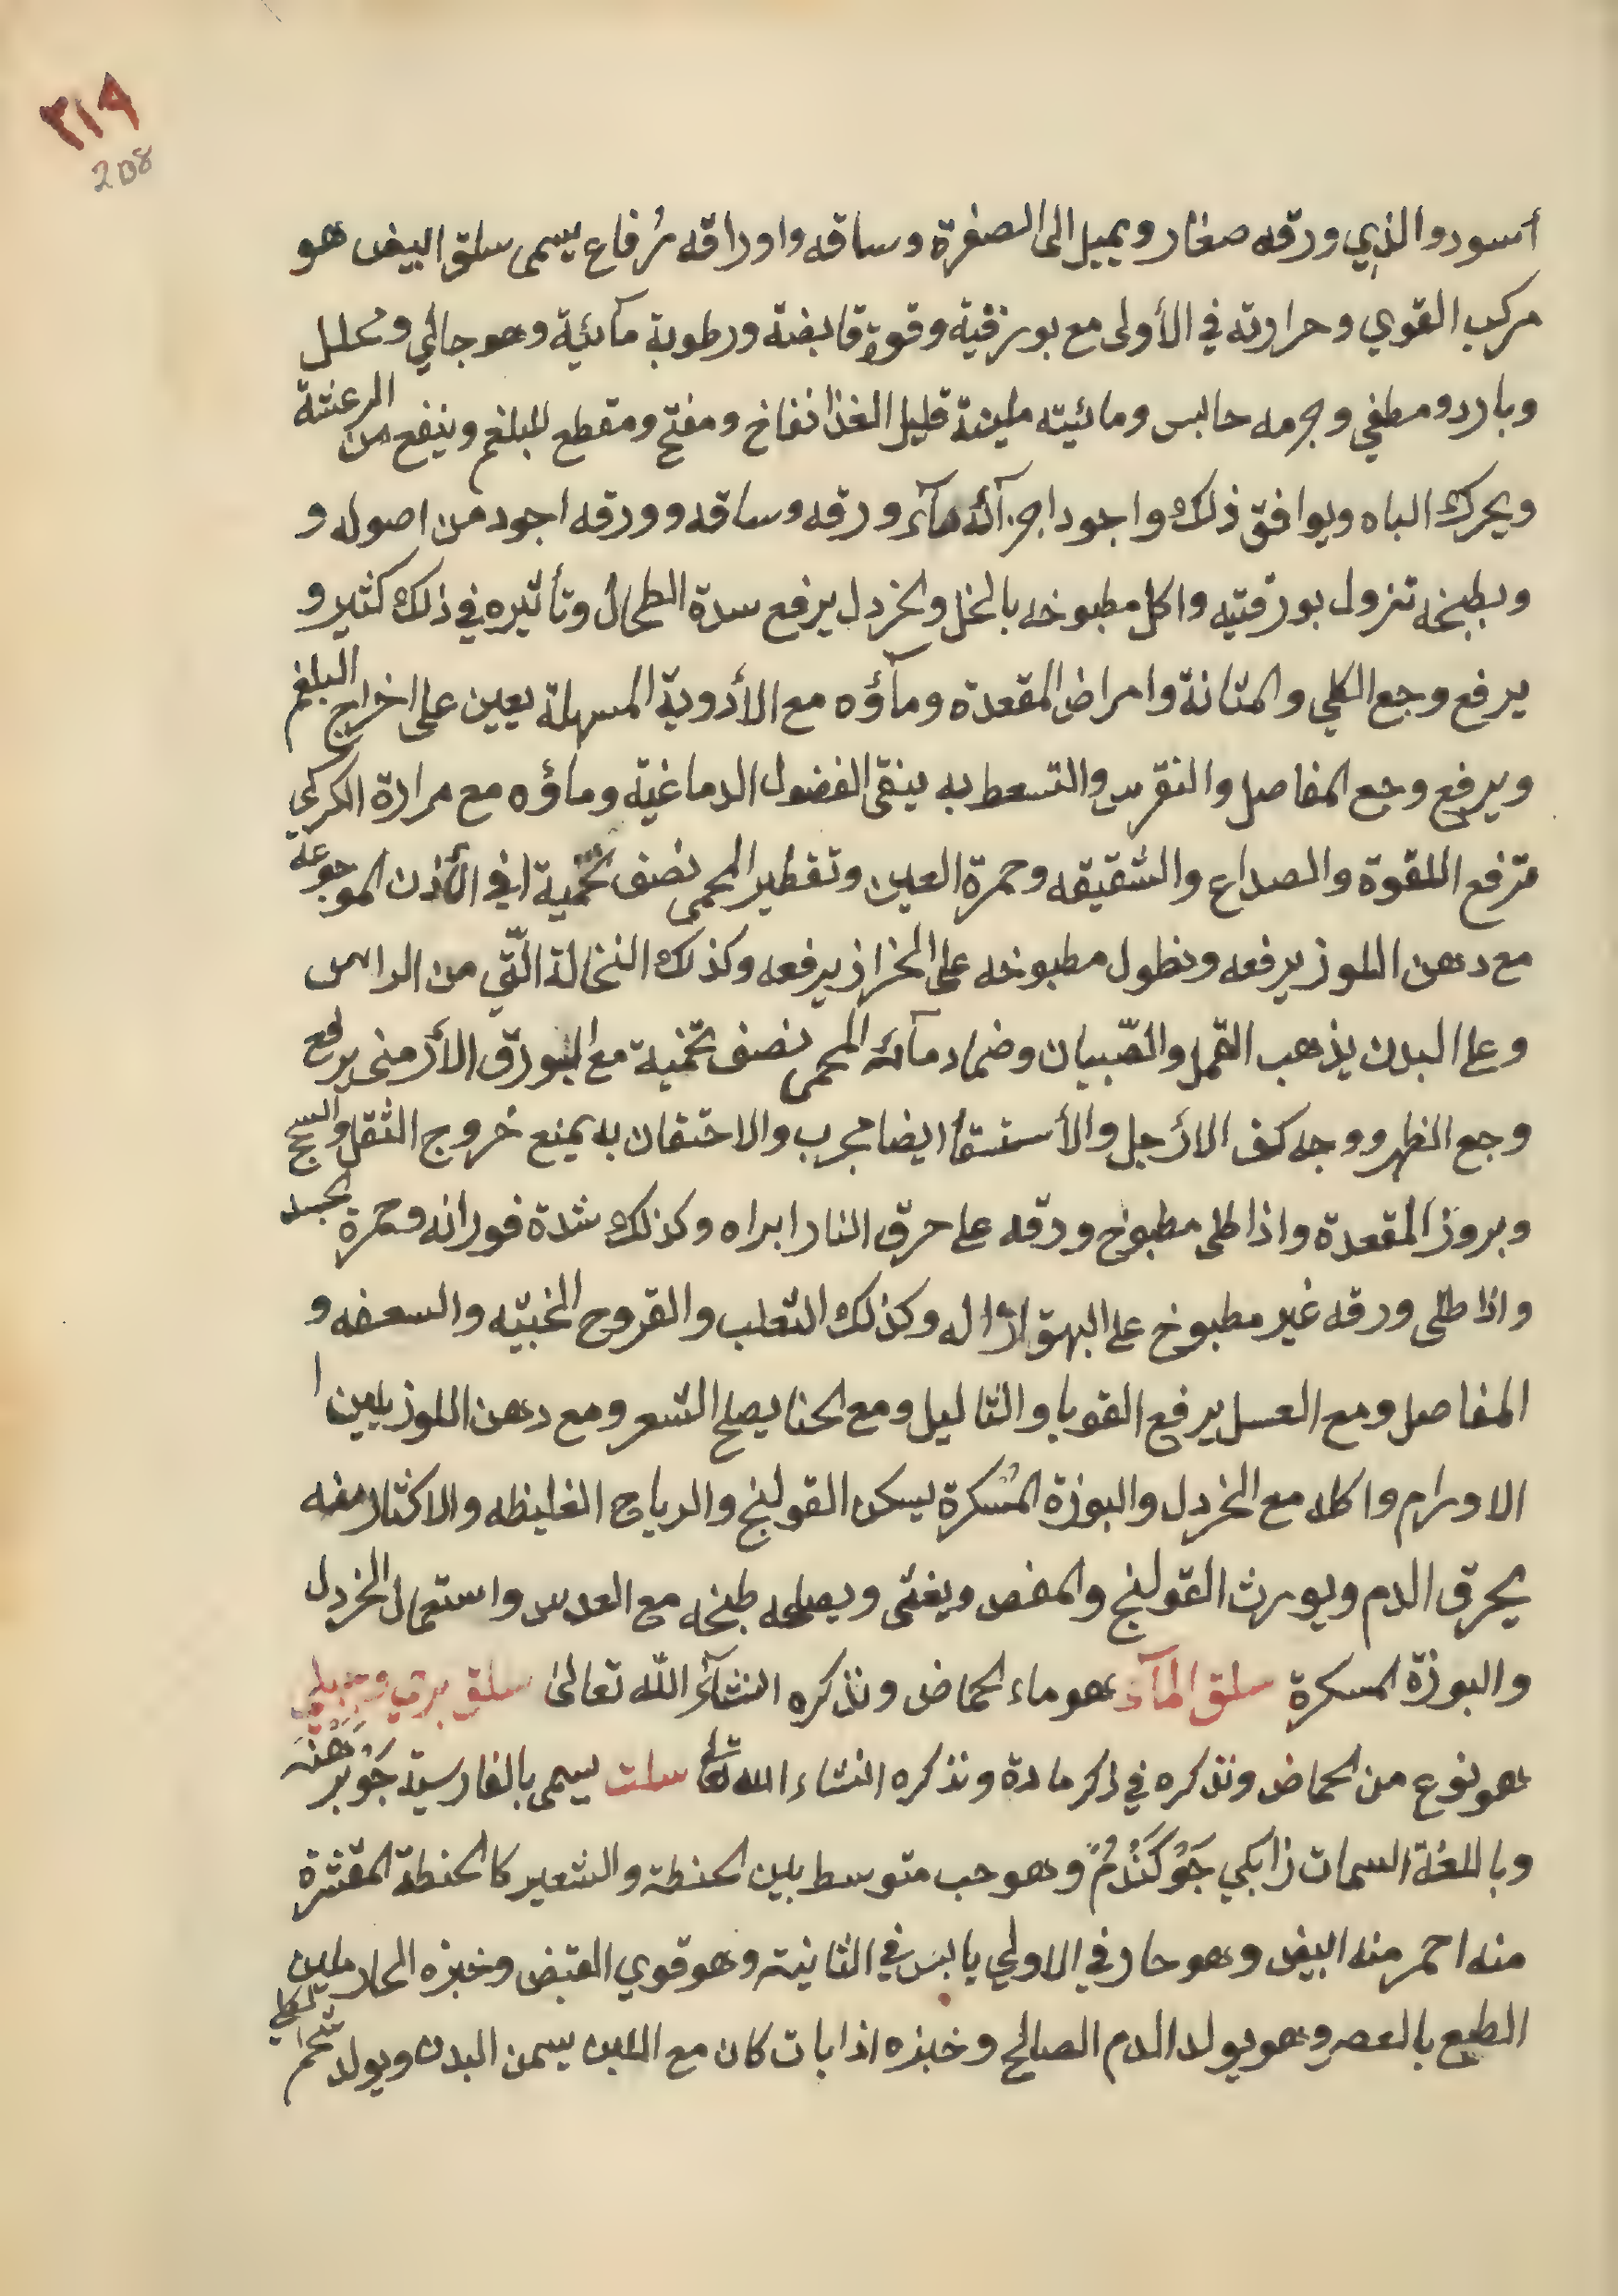 ٣١٩
208
أسود والذي ورقه صغار ويميل الى الصفرة وساقه واوراقه رُفاع يسمى سلق ابيض هو
مركب القوي وحرارته في الأولى مع بورقية وقوة قابضة ورطوبة مآئية وهو جالي ومحلل
وبارد ومطفي وجرمه حابس ومائيته ملينة قليل الغذا نفاخ ومفتح ومقطع للبلغم وينفع من الرعشة
ويحرك الباه ويوافق ذلك واجود اجزآئه مآء ورقه وساقه وورقه اجود من اصوله و
وبطبخه تزول بورقيته واكل مطبوخه بالخل والخردل يرفع سدة الطحال وتأثيره في ذلك كثير و
يرفع وجع الكلي والمثانة وامراض المقعدة ومآؤه مع الأدوية المسهلة يعين على اخراج البلغم
ويرفع وجع المفاصل والنقرس والتسعط به ينقي الفضول الدماغية وماؤه مع مرارة الكركي
ترفع اللقوة والصداع والشقيقه وحمرة العين وتقطير المحمى نصف تحمية في الأذن الموجوعة
مع دهن اللوز يرفعه ونطول مطبوخه على الحزاز يرفعه وكذلك النخالة الّتي من الراس
وعلى البدن يذهب القمل والصّيبان وضماد مآئه المحمى نصف تحمية مع البورق الأرمني يرفع
وجع الظهر ووجه كف الارجل والأستسقأ ايضا مجرب والاحتقان به يمنع خروج الثقل والسحج
وبروز المقعدة واذا طلى مطبوخ ورقه على حرق النار ابراه وكذلك شدة فورانه وحمرة الجسد
واذا طلى ورقه غير مطبوخ على البهق ازاله وكذلك الثعلب والقروح الخبيثه والسعفه و
المفاصل ومع العسل يرفع القوبا والثاليل ومع الحنا يصلح الشعر ومع دهن اللوز يلين ا
الاورام واكله مع الخردل والبوزة المُسكرة يسكن القولنج والرياح الغليظه والاكثار منه
يحرق الدم ويورث القولنج والمغص ويغثى ويصلحه طبخه مع العدس واستعمال الخردل
والبوزة المسكرة سلق المآء هو ماء الحماض ونذكره انشآء الله تعالى سلق بري وجبلي
هو نوع من الحماض ونذكره في ذكر مادة ونذكره انشاء الله تعالى سلت يسمى بالفارسية جَوْ بَرَهْنَه
وباللغة السمات زابكي جَوْ كَنْدُمْ وهو حب متوسط بين الحنطة والشعير كالحنطة المقشرة
منه احمر منه ابيض وهو حار في الاولي يابس في الثانية وهو قوي القبض وخبزه الحار ملين
الطبع بالعصر وهو يولد الدم الصالح وخبزه اذا بات كان مع اللبن يسمن البدن ويولد شحم الكلي